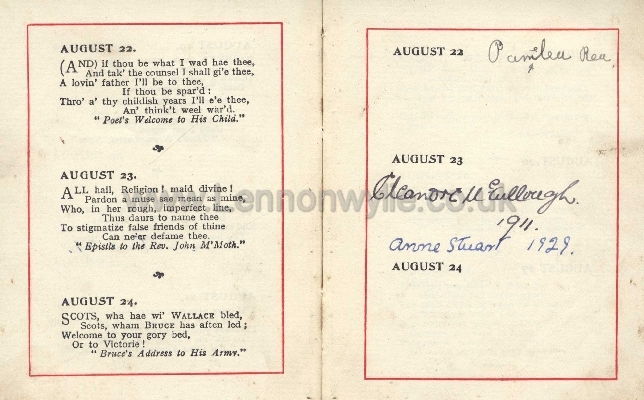 AUGUST 22.
(AND) if thou be what I wad hae thee,
And tak' the counsel I shall gi'e thee,
A lovin' father I'll be to thee,
If thou be spar'd:
Thro' a' thy childish years I'll e'e thee,
An' think't weel war'd.
"Poet's Welcome to His Child."
AUGUST 23.
ALL hail, Religion! maid divine!
Pardon a muse sae mean as mine,
Who, in her rough, imperfect line,
Thus daurs to name thee
To stigmatize false friends of thine
Can ne'er defame thee.
"Epistle to the Rev. John M'Moth."
AUGUST 24.
SCOTS, wha hae wi' WALLACE bled,
Scots, wham BRUCE has aften led;
Welcome to your gory bed,
Or to Victorie!
"Bruce's Address to His Army."
AUGUST 22 Pamlea Rea
AUGUST 23
Eleanor McCullough.
1911.
Anne Stuart 1929.
AUGUST 24
www.lennonwylie.co.uk